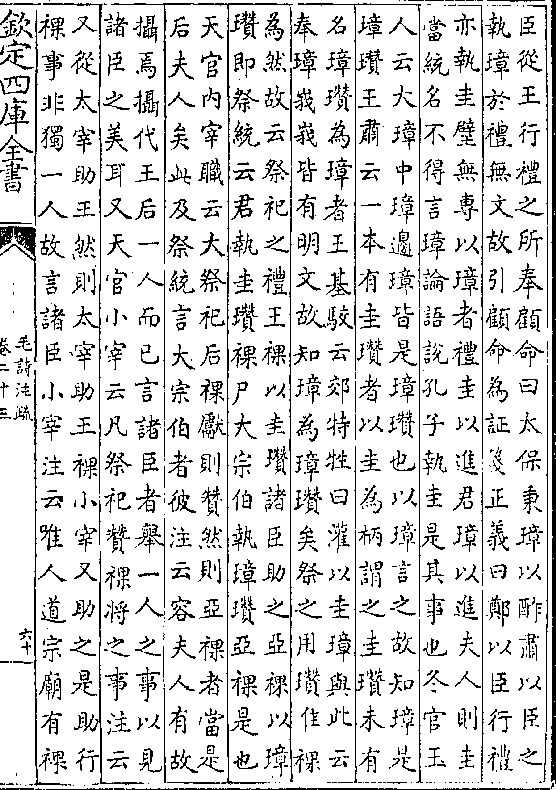 臣從王行禮之所奉顧命曰太保秉璋以酢肅以臣之
執璋於禮無文故引顧命為証箋正義曰鄭以臣行禮
亦執圭璧無專以璋者禮圭以進君璋以進夫人則圭
當統名不得言璋論語說孔子執圭是其事也冬官玉
人云大璋中璋邊璋皆是璋瓚也以璋言之故知璋是
璋瓚王肅云一本有圭瓚者以圭為柄謂之圭瓚未有
名璋瓚為璋者王基駮云郊特牲曰灌以圭璋與此云
奉璋峩峩皆有明文故知璋為璋瓚矣祭之用瓚隹祼
為然故云祭祀之禮王祼以圭瓚諸臣助之亞祼以璋
瓚即祭統云君執圭瓚祼尸大宗伯執璋瓚亞祼是也
天官內宰職云大祭祀后祼獻則贊然則亞祼者當是
后夫人矣此及祭統言大宗伯者彼注云容夫人有故
攝焉攝代王后一人而已言諸臣者舉一人之事以見
諸臣之美耳又天官小宰云凡祭祀贊祼將之事注云
又從太宰助王然則太宰助王祼小宰又助之是助行
祼事非獨一人故言諸臣小宰注云唯人道宗廟有祼
欽定四庫全書
毛詩注疏
卷二十三
六十